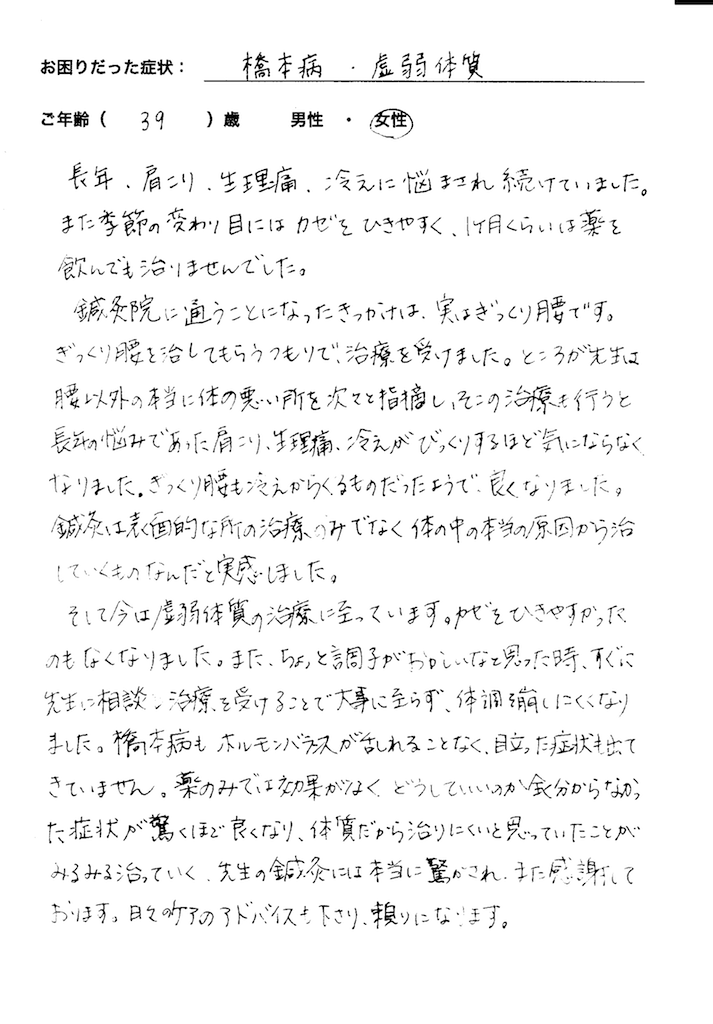 お困りだった症状： 橋本病 ・ 虚弱体質
ご年齢（ 39 ）歳 男性 ・ 女性
長年、肩こり、生理痛、冷えに悩まされ続けていました。
また季節の変わり目にはカゼをひきやすく、1ヶ月くらいは薬を
飲んでも治りませんでした。
鍼灸院に通うことになったきっかけは、実はぎっくり腰です。
ぎっくり腰を治してもらうつもりで、治療を受けました。ところが先生は
腰以外の本当に体の悪い所を次々と指摘し、そこの治療を行うと
長年の悩みであった肩こり、生理痛、冷えがびっくりするほど気にならなく
なりました。ぎっくり腰も冷えからくるものだったようで、良くなりました。
鍼灸は表面的な所の治療のみでなく体の中の本当の原因から治
していくものなんだと実感しました。
そして今は虚弱体質の治療に至っています。カゼをひきやすかった
のもなくなりました。また、ちょっと調子がおかしいなと思った時、すぐに
先生に相談し治療を受けることで大事に至らず、体調を崩しにくくなり
ました。橋本病もホルモンバランスが乱れることなく、目立った症状も出て
きていません。薬のみでは効果がなく、どうしていいのか全く分からなかっ
た症状が驚くほど良くなり、体質だから治りにくいと思っていたことが
みるみる治っていく、先生の鍼灸には本当に驚かされ、また感謝して
おります。日々のケアのアドバイスも下さり、頼りになります。